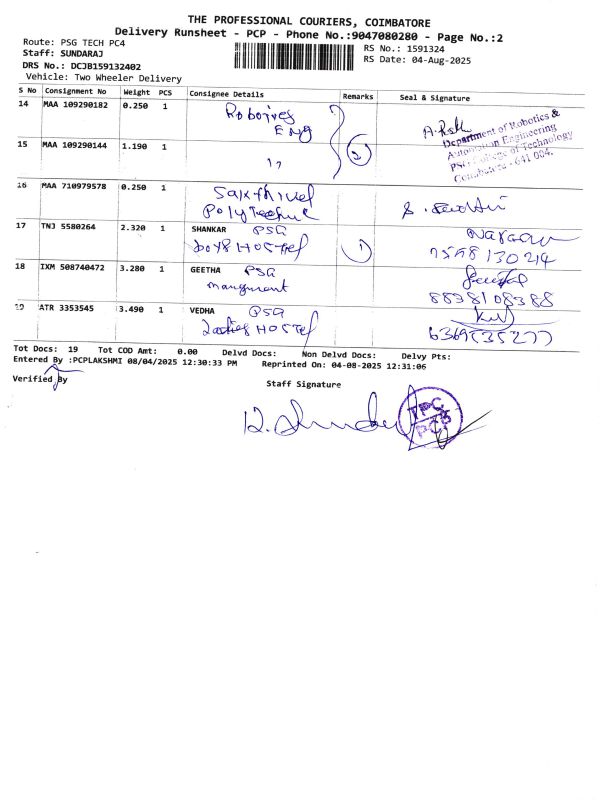 THE PROFESSIONAL COURIERS, COIMBATORE
Delivery Runsheet - PCP - Phone No.:9047080280 - Page No.:2
Route: PSG TECH PC4
RS No.: 1591324
Staff: SUNDARAJ
RS Date: 04-Aug-2025
DRS No.: DCJB159132402
Vehicle: Two Wheeler Delivery
S No Consignment No Weight PCS Consignee Details Remarks Seal & Signature
14 MAA 109290182 0.250 1
ENG
Department of Robotics &
Automation Engineering
PSG College of Technology
Coimbatore - 641 004.
15 MAA 109290144 1.190 1 ,, 2
16 MAA 710979578 0.250 1
Polytechnic
17 TNJ 5580264 2.320 1 SHANKAR PSG
Boys Hostel 1
7558130214
18 IXM 508740472 3.280 1 GEETHA PSG
management
8838108388
19 ATR 3353545 3.490 1 VEDHA PSG
Ladies Hostel
6369535277
Tot Docs: 19 Tot COD Amt: 0.00 Delvd Docs: Non Delvd Docs: Delvy Pts:
Entered By :PCPLAKSHMI 08/04/2025 12:30:33 PM Reprinted On: 04-08-2025 12:31:06
Verified By
Staff Signature
TPC